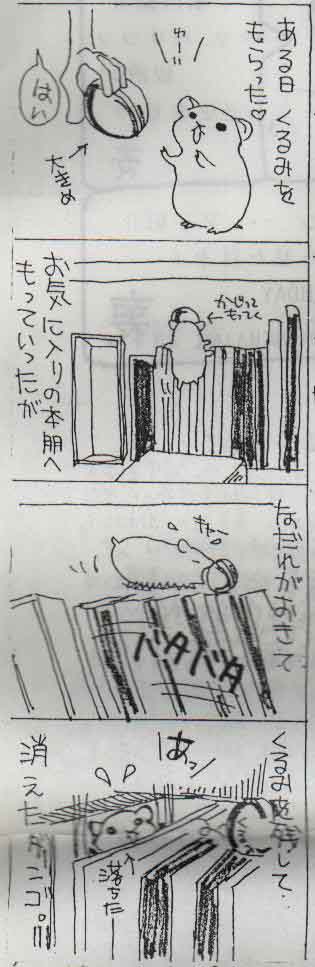 ある日 くるみを
もらった♡
わーい
はい
大きめ
お気に入りの本朋へ
もっていったが
かじって
もってく
なだれがおきて
キャー
バタバタ
くるみを残して…
あっ
落ちた
消えたダンゴ。!!